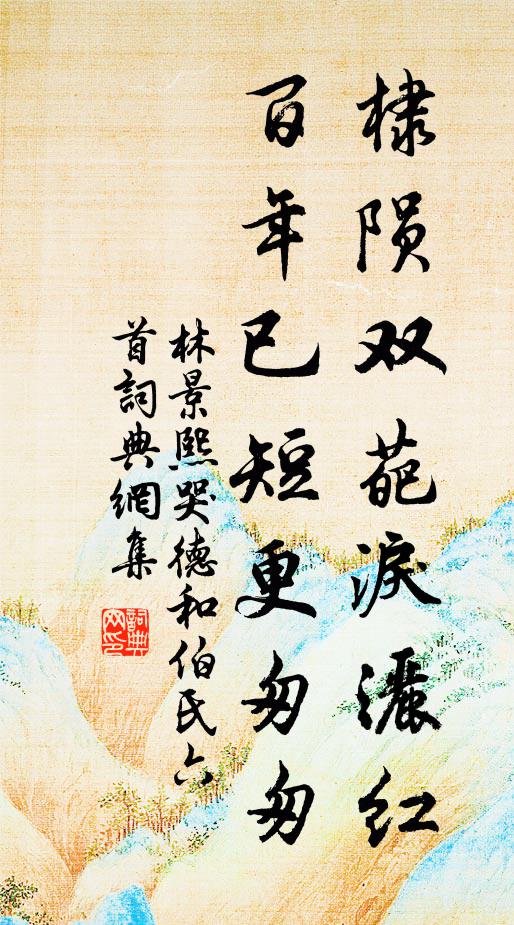 棣陨双葩淚灑红
百年已短更匆匆
林景熙哭德和伯氏六
首詞典網集
詞典
网印